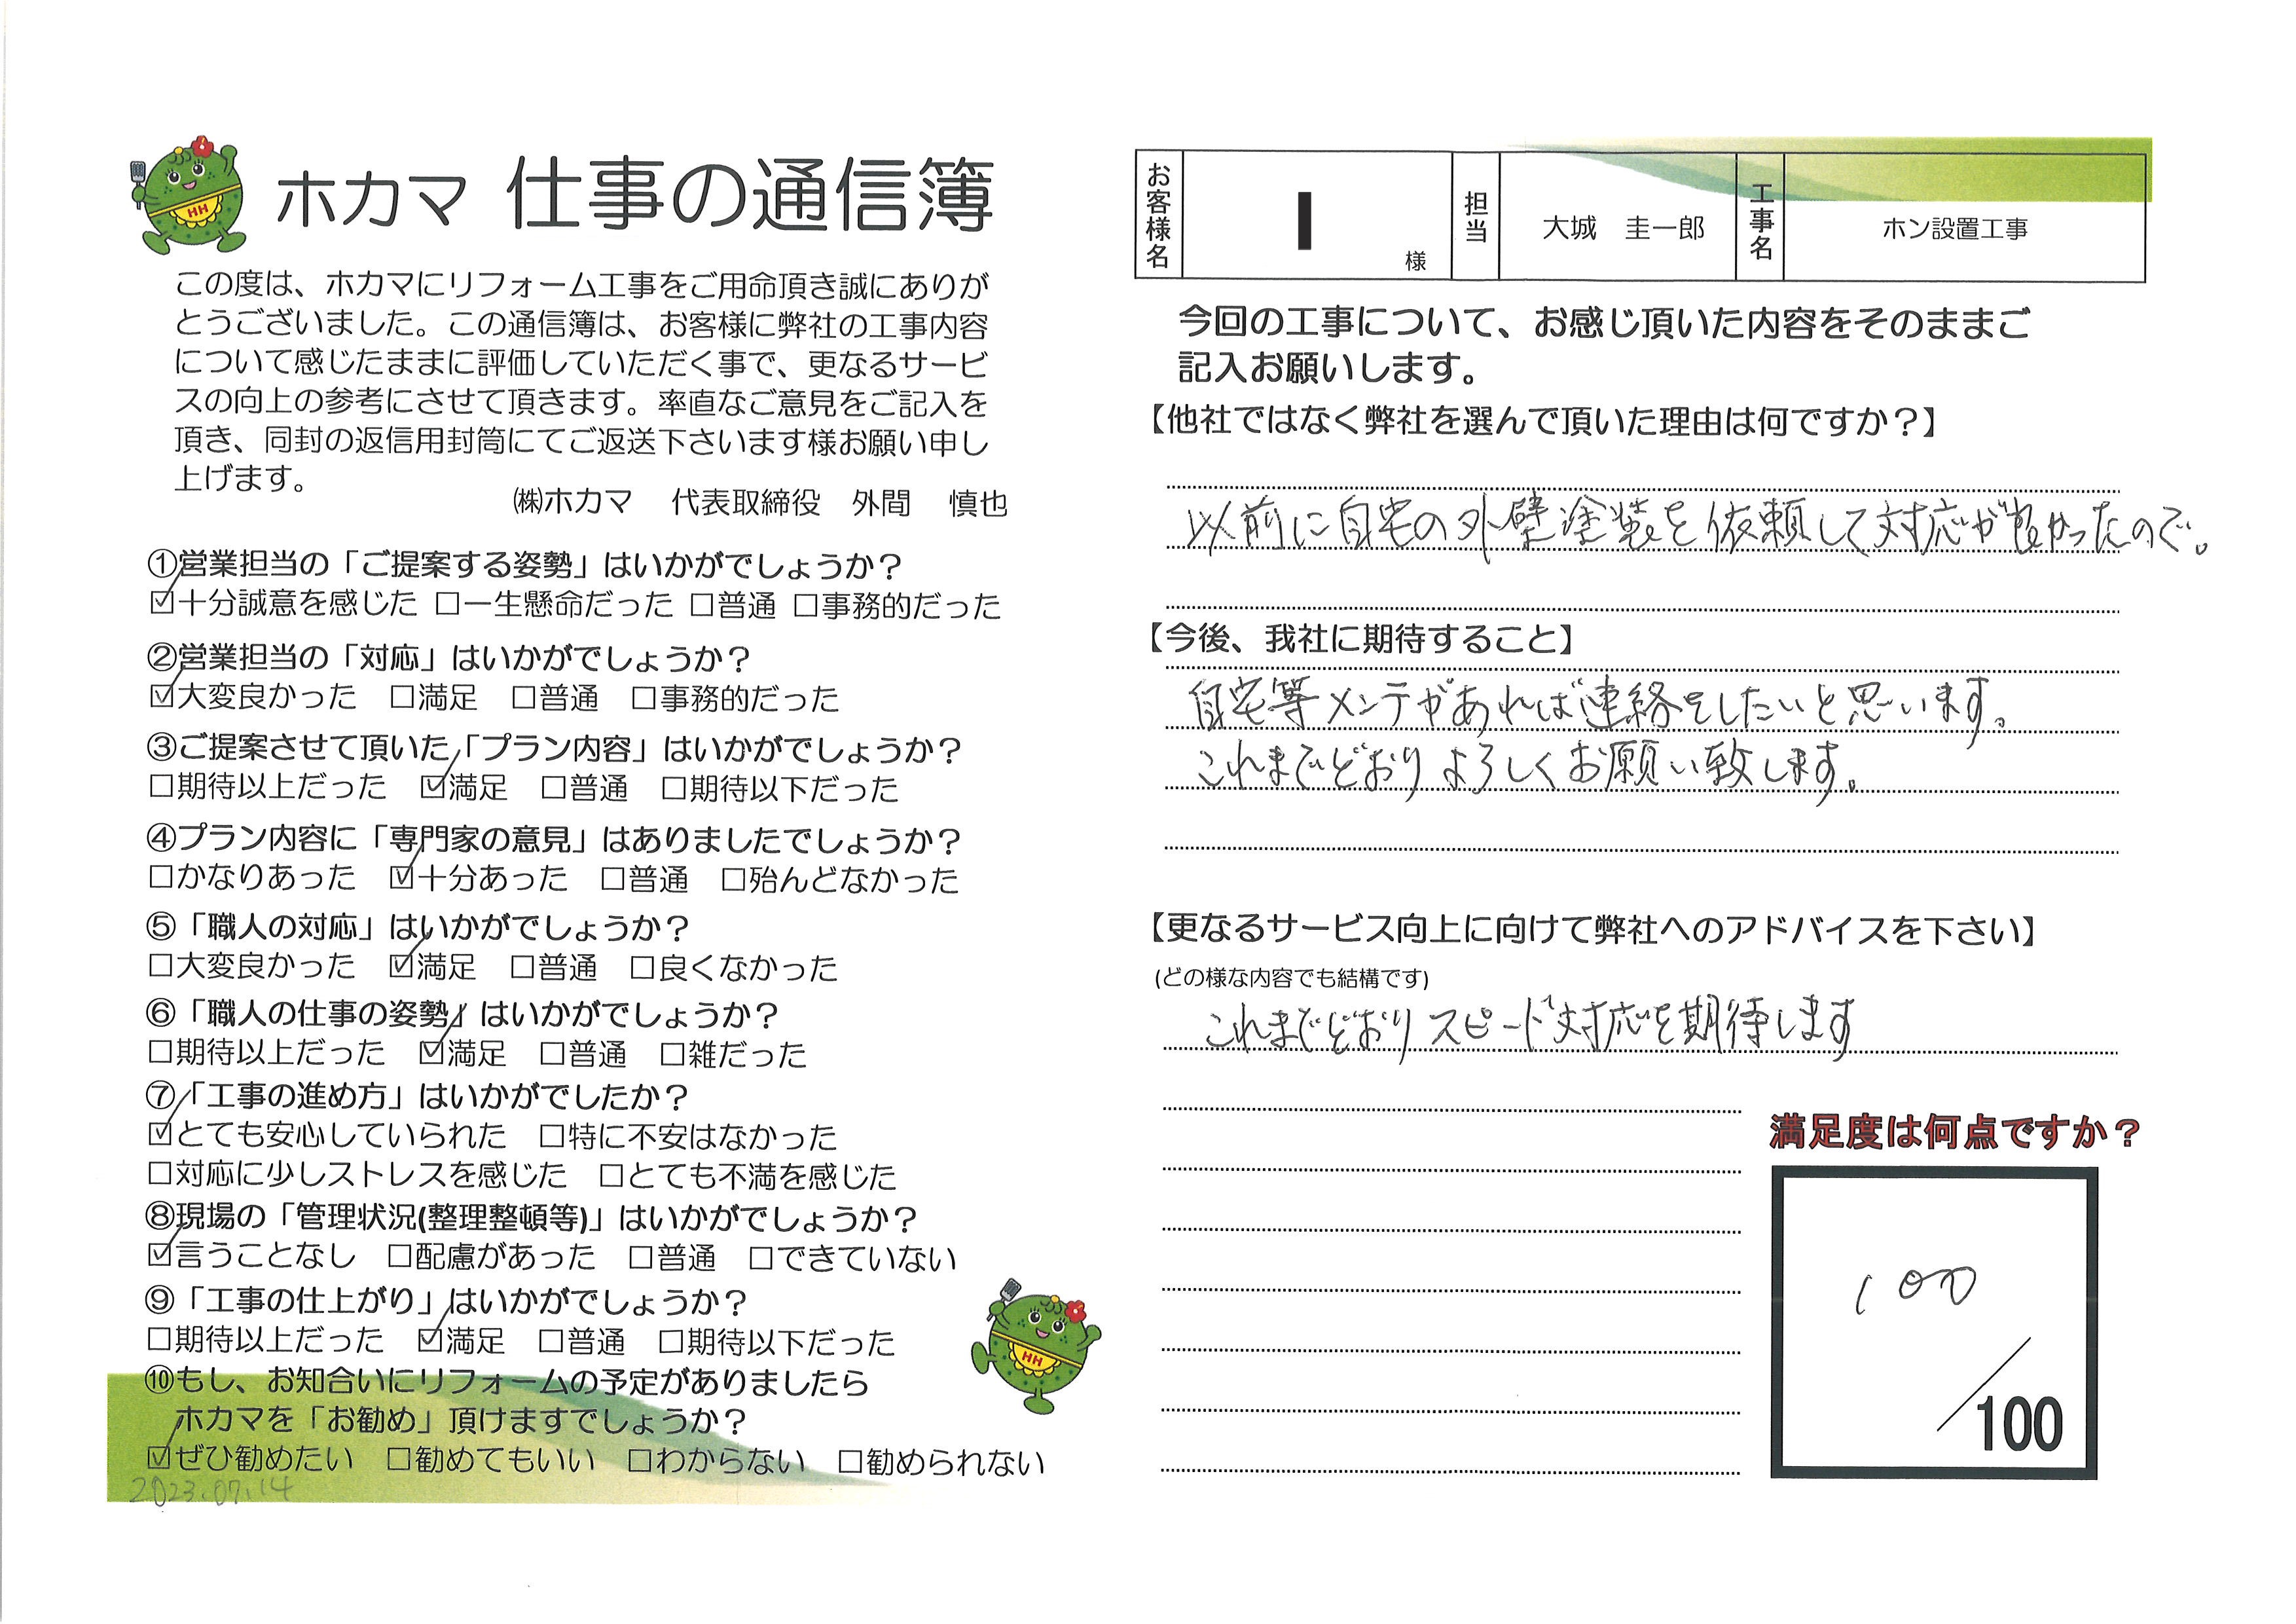 ホカマ 仕事の通信簿
この度は、ホカマにリフォーム工事をご用命頂き誠にありが
とうございました。この通信簿は、お客様に弊社の工事内容
について感じたままに評価していただく事で、更なるサービ
スの向上の参考にさせて頂きます。率直なご意見をご記入を
頂き、同封の返信用封筒にてご返送下さいます様お願い申し
上げます。
㈱ホカマ 代表取締役 外間 慎也
①営業担当の「ご提案する姿勢」はいかがでしょうか？
☑十分誠意を感じた □一生懸命だった □普通 □事務的だった
②営業担当の「対応」はいかがでしょうか？
☑大変良かった □満足 □普通 □事務的だった
③ご提案させて頂いた「プラン内容」はいかがでしょうか？
□期待以上だった ☑満足 □普通 □期待以下だった
④プラン内容に「専門家の意見」はありましたでしょうか？
□かなりあった ☑十分あった □普通 □殆んどなかった
⑤「職人の対応」はいかがでしょうか？
□大変良かった ☑満足 □普通 □良くなかった
⑥「職人の仕事の姿勢」はいかがでしょうか？
□期待以上だった ☑満足 □普通 □雑だった
⑦「工事の進め方」はいかがでしたか？
☑とても安心していられた □特に不安はなかった
□対応に少しストレスを感じた □とても不満を感じた
⑧現場の「管理状況(整理整頓等)」はいかがでしょうか？
☑言うことなし □配慮があった □普通 □できていない
⑨「工事の仕上がり」はいかがでしょうか？
□期待以上だった ☑満足 □普通 □期待以下だった
⑩もし、お知合いにリフォームの予定がありましたら
ホカマを「お勧め」頂けますでしょうか？
☑ぜひ勧めたい □勧めてもいい □わからない □勧められない
2023.07.14
HH
HH
お客様名 I 様 担当 大城 圭一郎 工事名 ホン設置工事
今回の工事について、お感じ頂いた内容をそのままご
記入お願いします。
【他社ではなく弊社を選んで頂いた理由は何ですか？】
以前に自宅の外壁塗装を依頼して対応が良かったので。
【今後、我社に期待すること】
自宅等メンテがあれば連絡をしたいと思います。
これまでどおりよろしくお願い致します。
【更なるサービス向上に向けて弊社へのアドバイスを下さい】
(どの様な内容でも結構です)
これまでどおりスピード対応を期待します
満足度は何点ですか？
100
/100